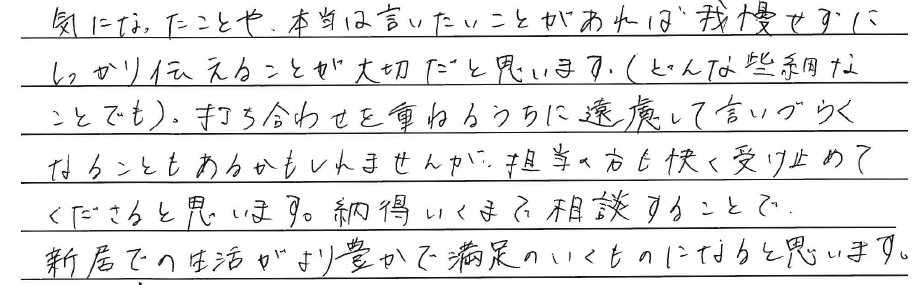 気になったことや、本当は言いたいことがあれば我慢せずに
しっかり伝えることが大切だと思います。(どんな些細な
ことでも)。打ち合わせを重ねるうちに遠慮して言いづらく
なることもあるかもしれませんが、担当の方も快く受け止めて
くださると思います。納得いくまで相談することで、
新居での生活がより豊かで満足のいくものになると思います。